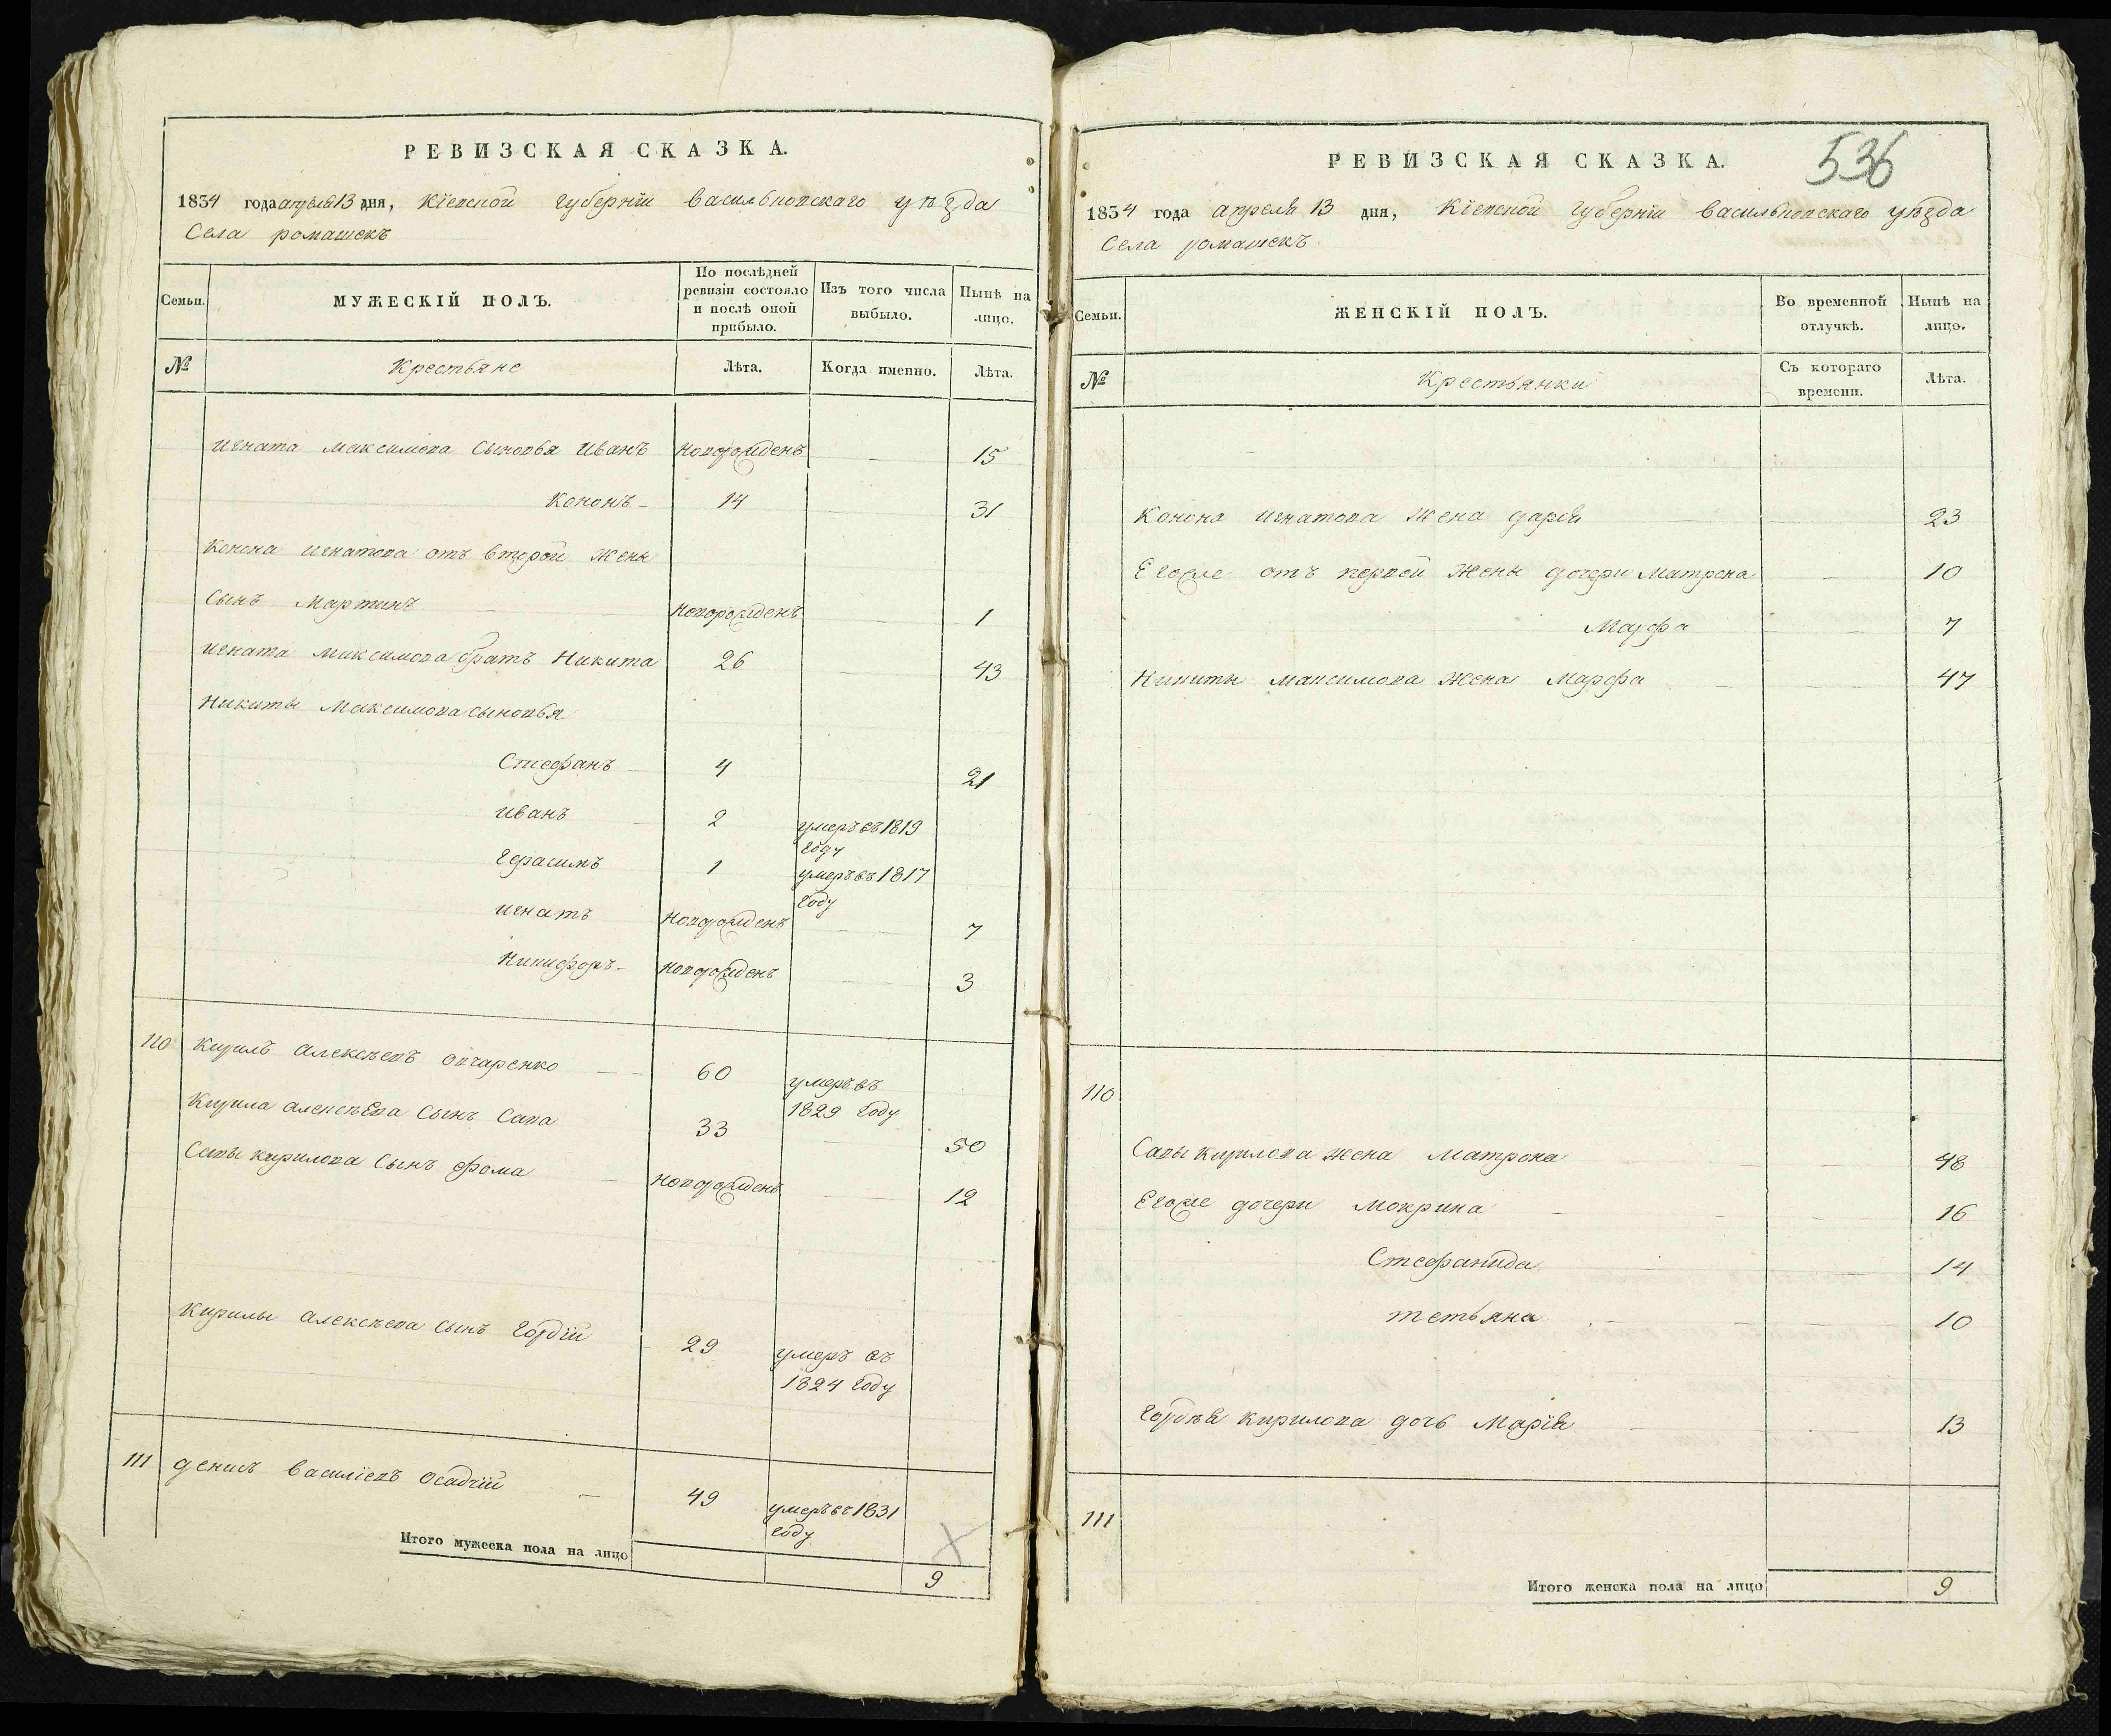 РЕВИЗСКАЯ СКАЗКА.
1834 года апреля 13 дня, Кіевской губерніи васильковскаго уѣзда
Села ромашекъ
Семьи. МУЖЕСКІЙ ПОЛЪ. По послѣдней ревизіи состояло и послѣ оной прибыло. Изъ того числа выбыло. Нынѣ на лицо.
№ Крестьяне Лѣта. Когда именно. Лѣта.
игната максимова сыновья иванъ новорожденъ 15
Кононъ 14 31
Конона игнатова отъ второй жены
сынъ Мартинъ новорожденъ 1
игната максимова братъ Никита 26 43
Никиты Максимова сыновья
Стефанъ 4 21
иванъ 2 умеръ въ 1819 году
Герасимъ 1 умеръ въ 1817 году
игнатъ новорожденъ 7
Никифоръ новорожденъ 3
110 Кирилъ алексѣевъ овчаренко 60 умеръ въ 1829 году
Кирила алексѣева сынъ Сава 33 50
Савы кирилова сынъ фома новорожденъ 12
Кирилы алексѣева сынъ Гордій 29 умеръ въ 1824 году
111 денисъ василіевъ осадчій 49 умеръ въ 1831 году
Итого мужеска пола на лицо 9
536
РЕВИЗСКАЯ СКАЗКА.
1834 года апреля 13 дня, Кіевской губерніи васильковскаго уѣзда
Села ромашекъ
Семьи. ЖЕНСКІЙ ПОЛЪ. Во временной отлучкѣ. Нынѣ на лицо.
№ Крестьянки Съ котораго времени. Лѣта.
Конона игнатова жена дарія 23
Егоже отъ первой жены дочери Матрена 10
Марфа 7
Никиты максимова жена Марфа 47
110
Савы Кирилова жена Матрона 48
Егоже дочери Мокрина 16
Стефанида 14
тетьяна 10
Гордѣя кирилова дочь Марія 13
111
Итого женска пола на лицо 9